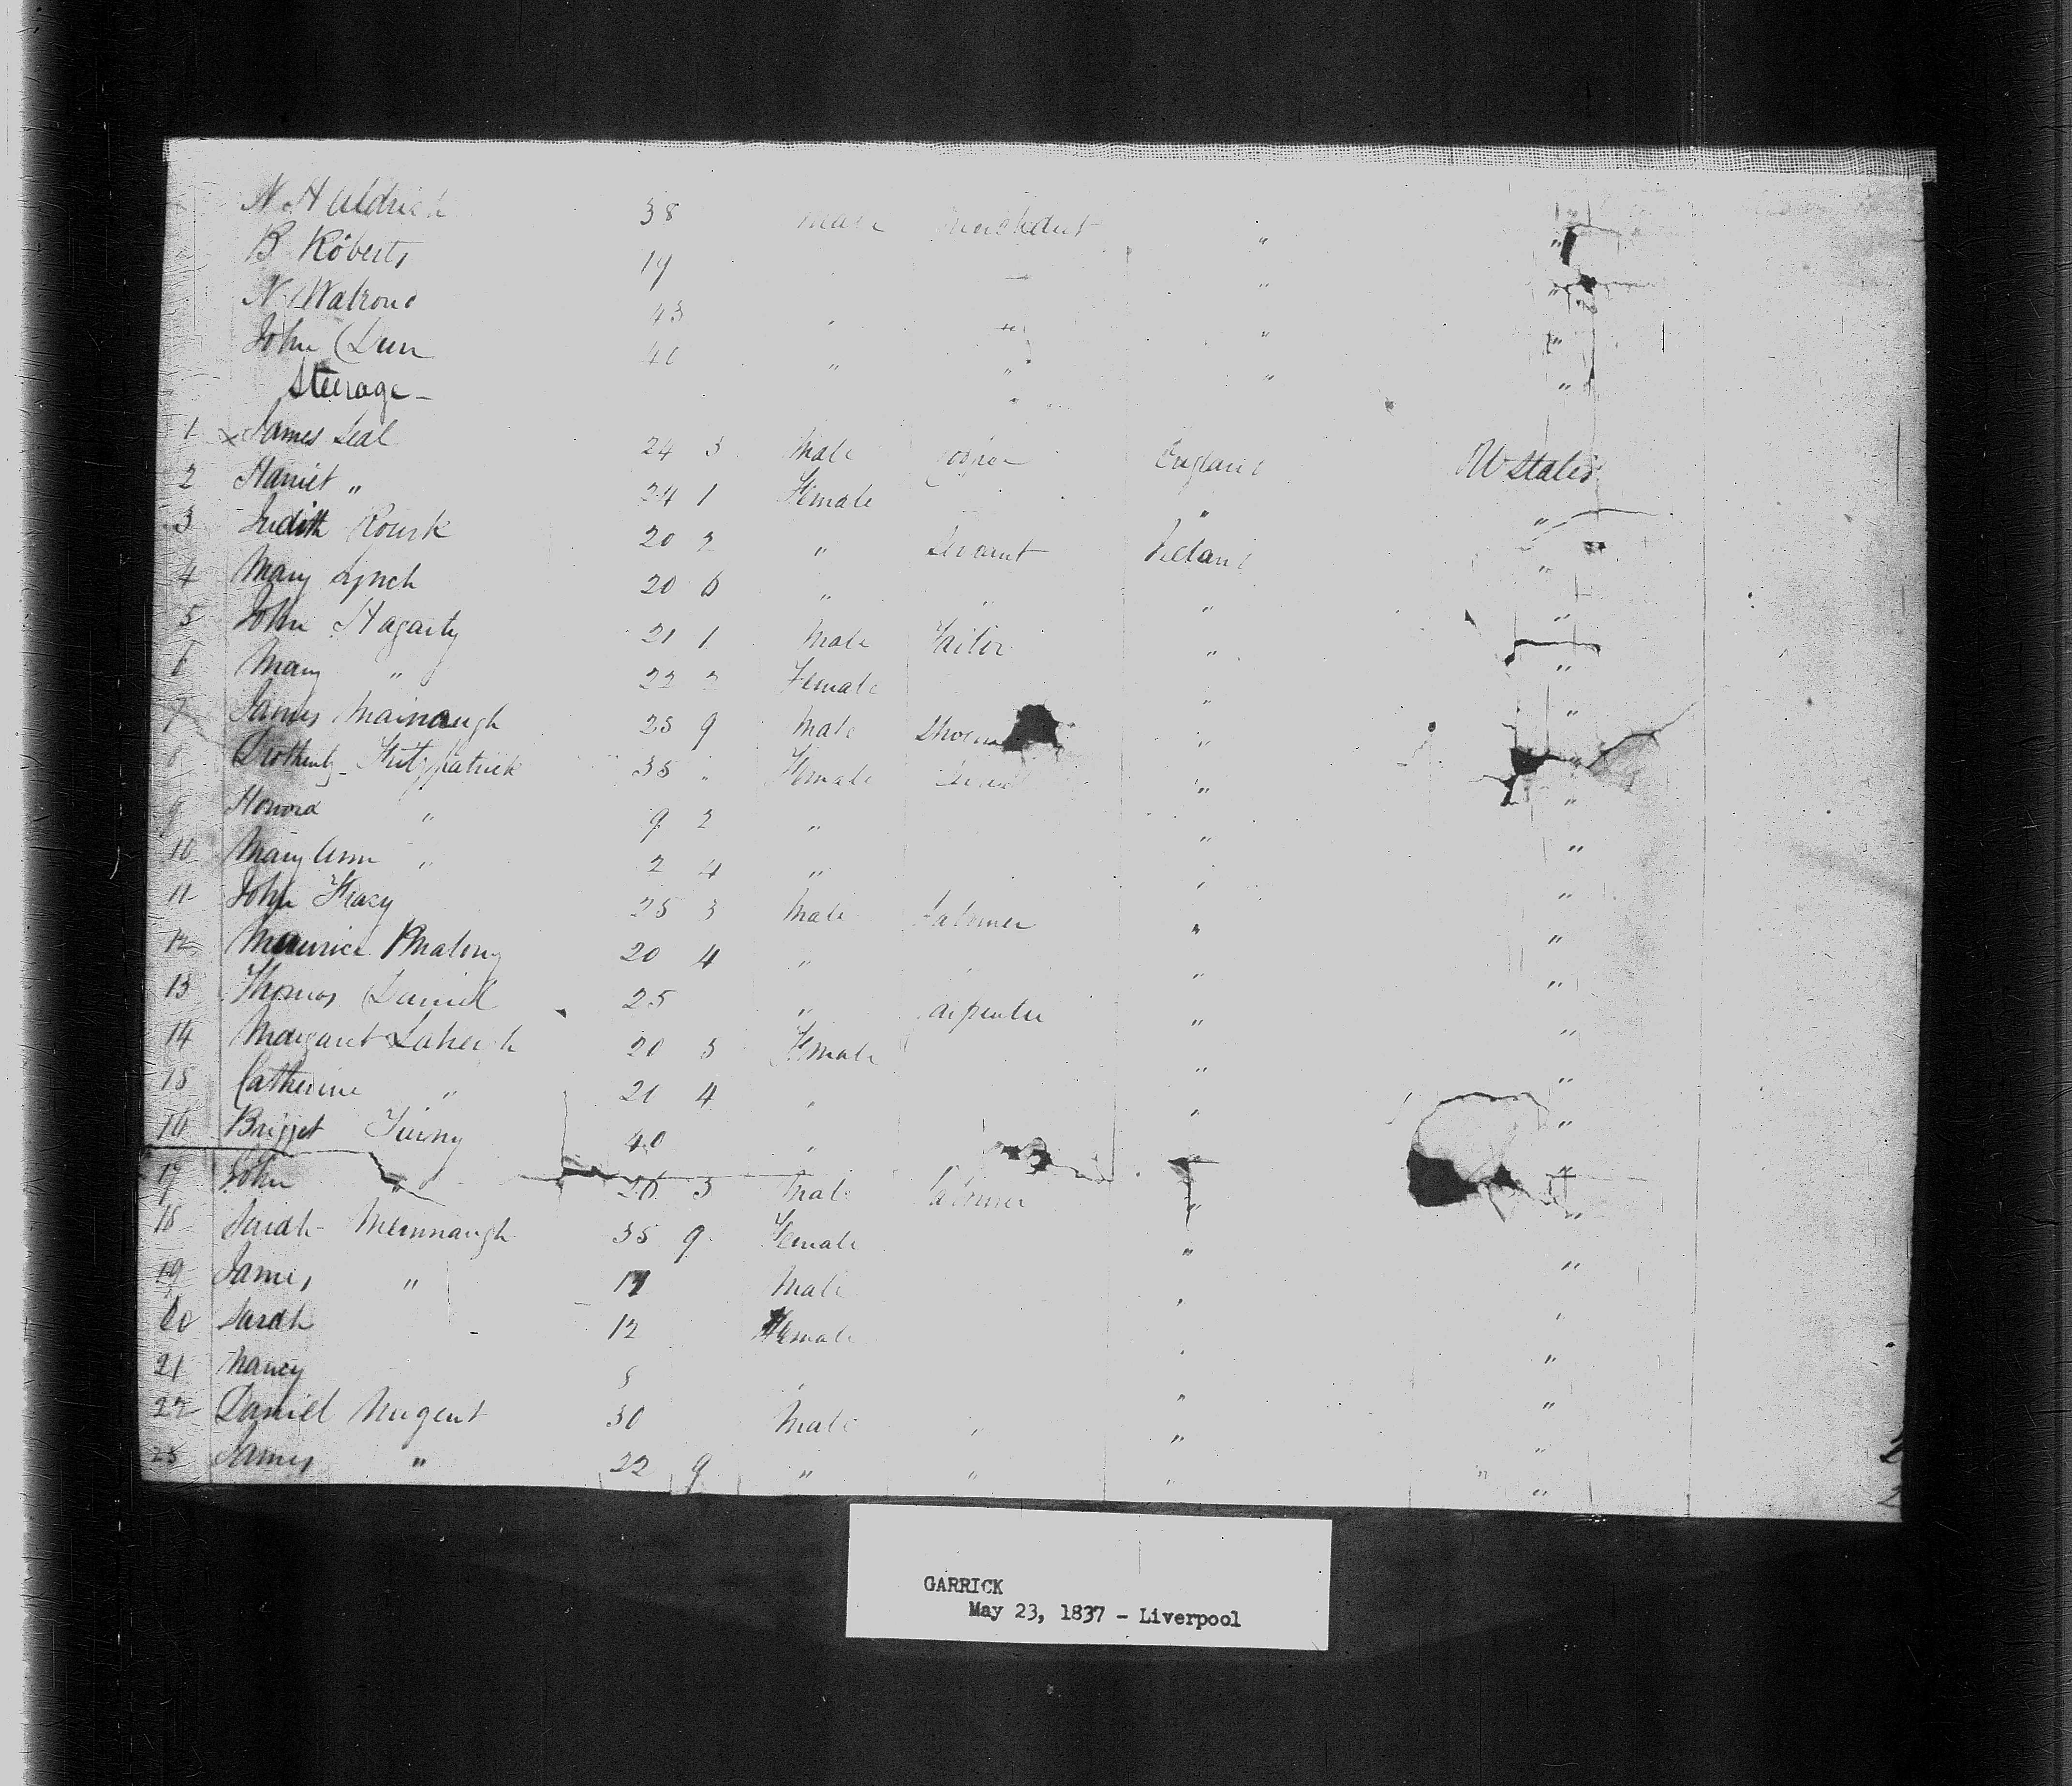 38 Male Merchant "
B. Roberts 19 "
N. Walrond 43 " " " "
John Dun 40 " " " "
Steerage -
1 James Seal 24 3 Male England U States
2 Harriet " 24 1 Female " "
3 Judith Rourk 20 2 " Servant Ireland "
4 Mary Lynch 20 6 " " " "
5 John Hagarty 21 1 Male Tailor " "
6 Mary " 22 2 Female " "
7 James Mainaugh 25 9 Male " "
8 Fitzpatrick 35 " Female " "
9 Honora " 9 2 " " "
10 Mary Ann " 2 4 " " "
11 John Tracy 25 3 Male Labourer " "
12 Maurice 20 4 " " "
13 Thomas Daniel 25 " Carpenter " "
14 Margaret 20 3 Female " "
15 Catherine " 21 4 " " "
16 Bridget 40 " " "
17 John " 20 3 Male Labourer " "
18 Sarah Mennaugh 35 9 Female " "
19 James " Male " "
20 Sarah 12 Female " "
21 Nancy " " "
22 Daniel Nugent 30 Male " " "
23 James " 22 9 " " " " "
GARRICK
May 23, 1837 - Liverpool